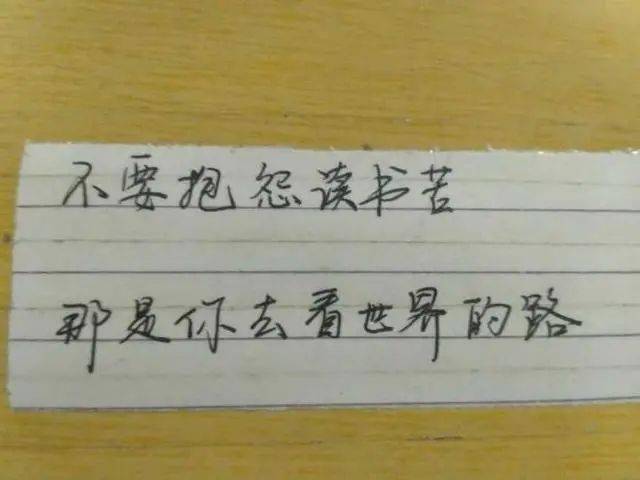 不要抱怨读书苦
那是你去看世界的路